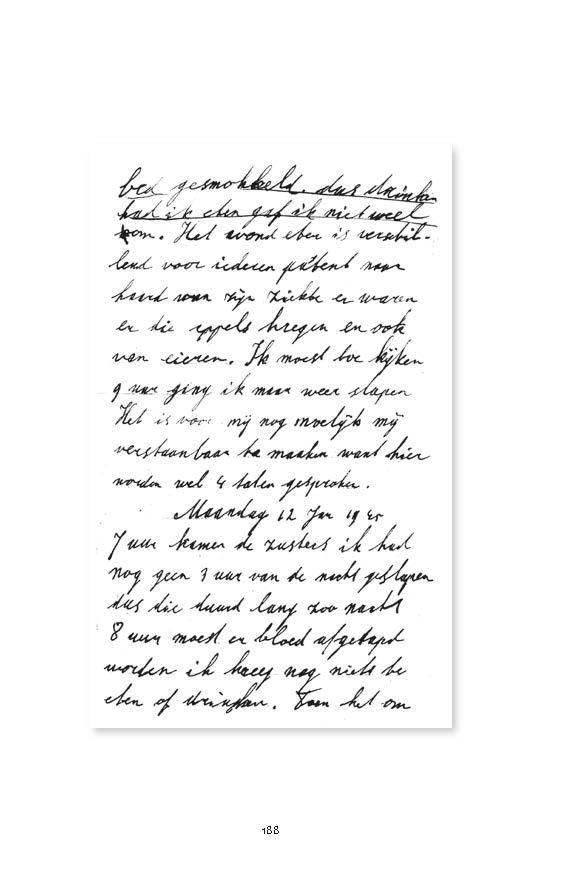 bed gesmokkeld. dus drinken
had ik eten gaf ik niet veel
om. Het avond eten is verschil-
lend voor iederen patient naar
haard van zijn ziekte er waren
er die appels kregen en ook
van eieren. Ik moest toe kijken
9 uur ging ik maar weer slapen
Het is voor mij nog moelijk mij
verstaanbaar te maaken want hier
worden wel 4 talen gesproken.
Maandag 12 Jan 19
7 uur kamen de zusters ik had
nog geen 3 uur van de nacht geslapen
dus die duurd lang zoo nacht
8 uur moest er bloed afgetapd
worden ik kreeg nog niets te
eten of drinken. Toen het om
188